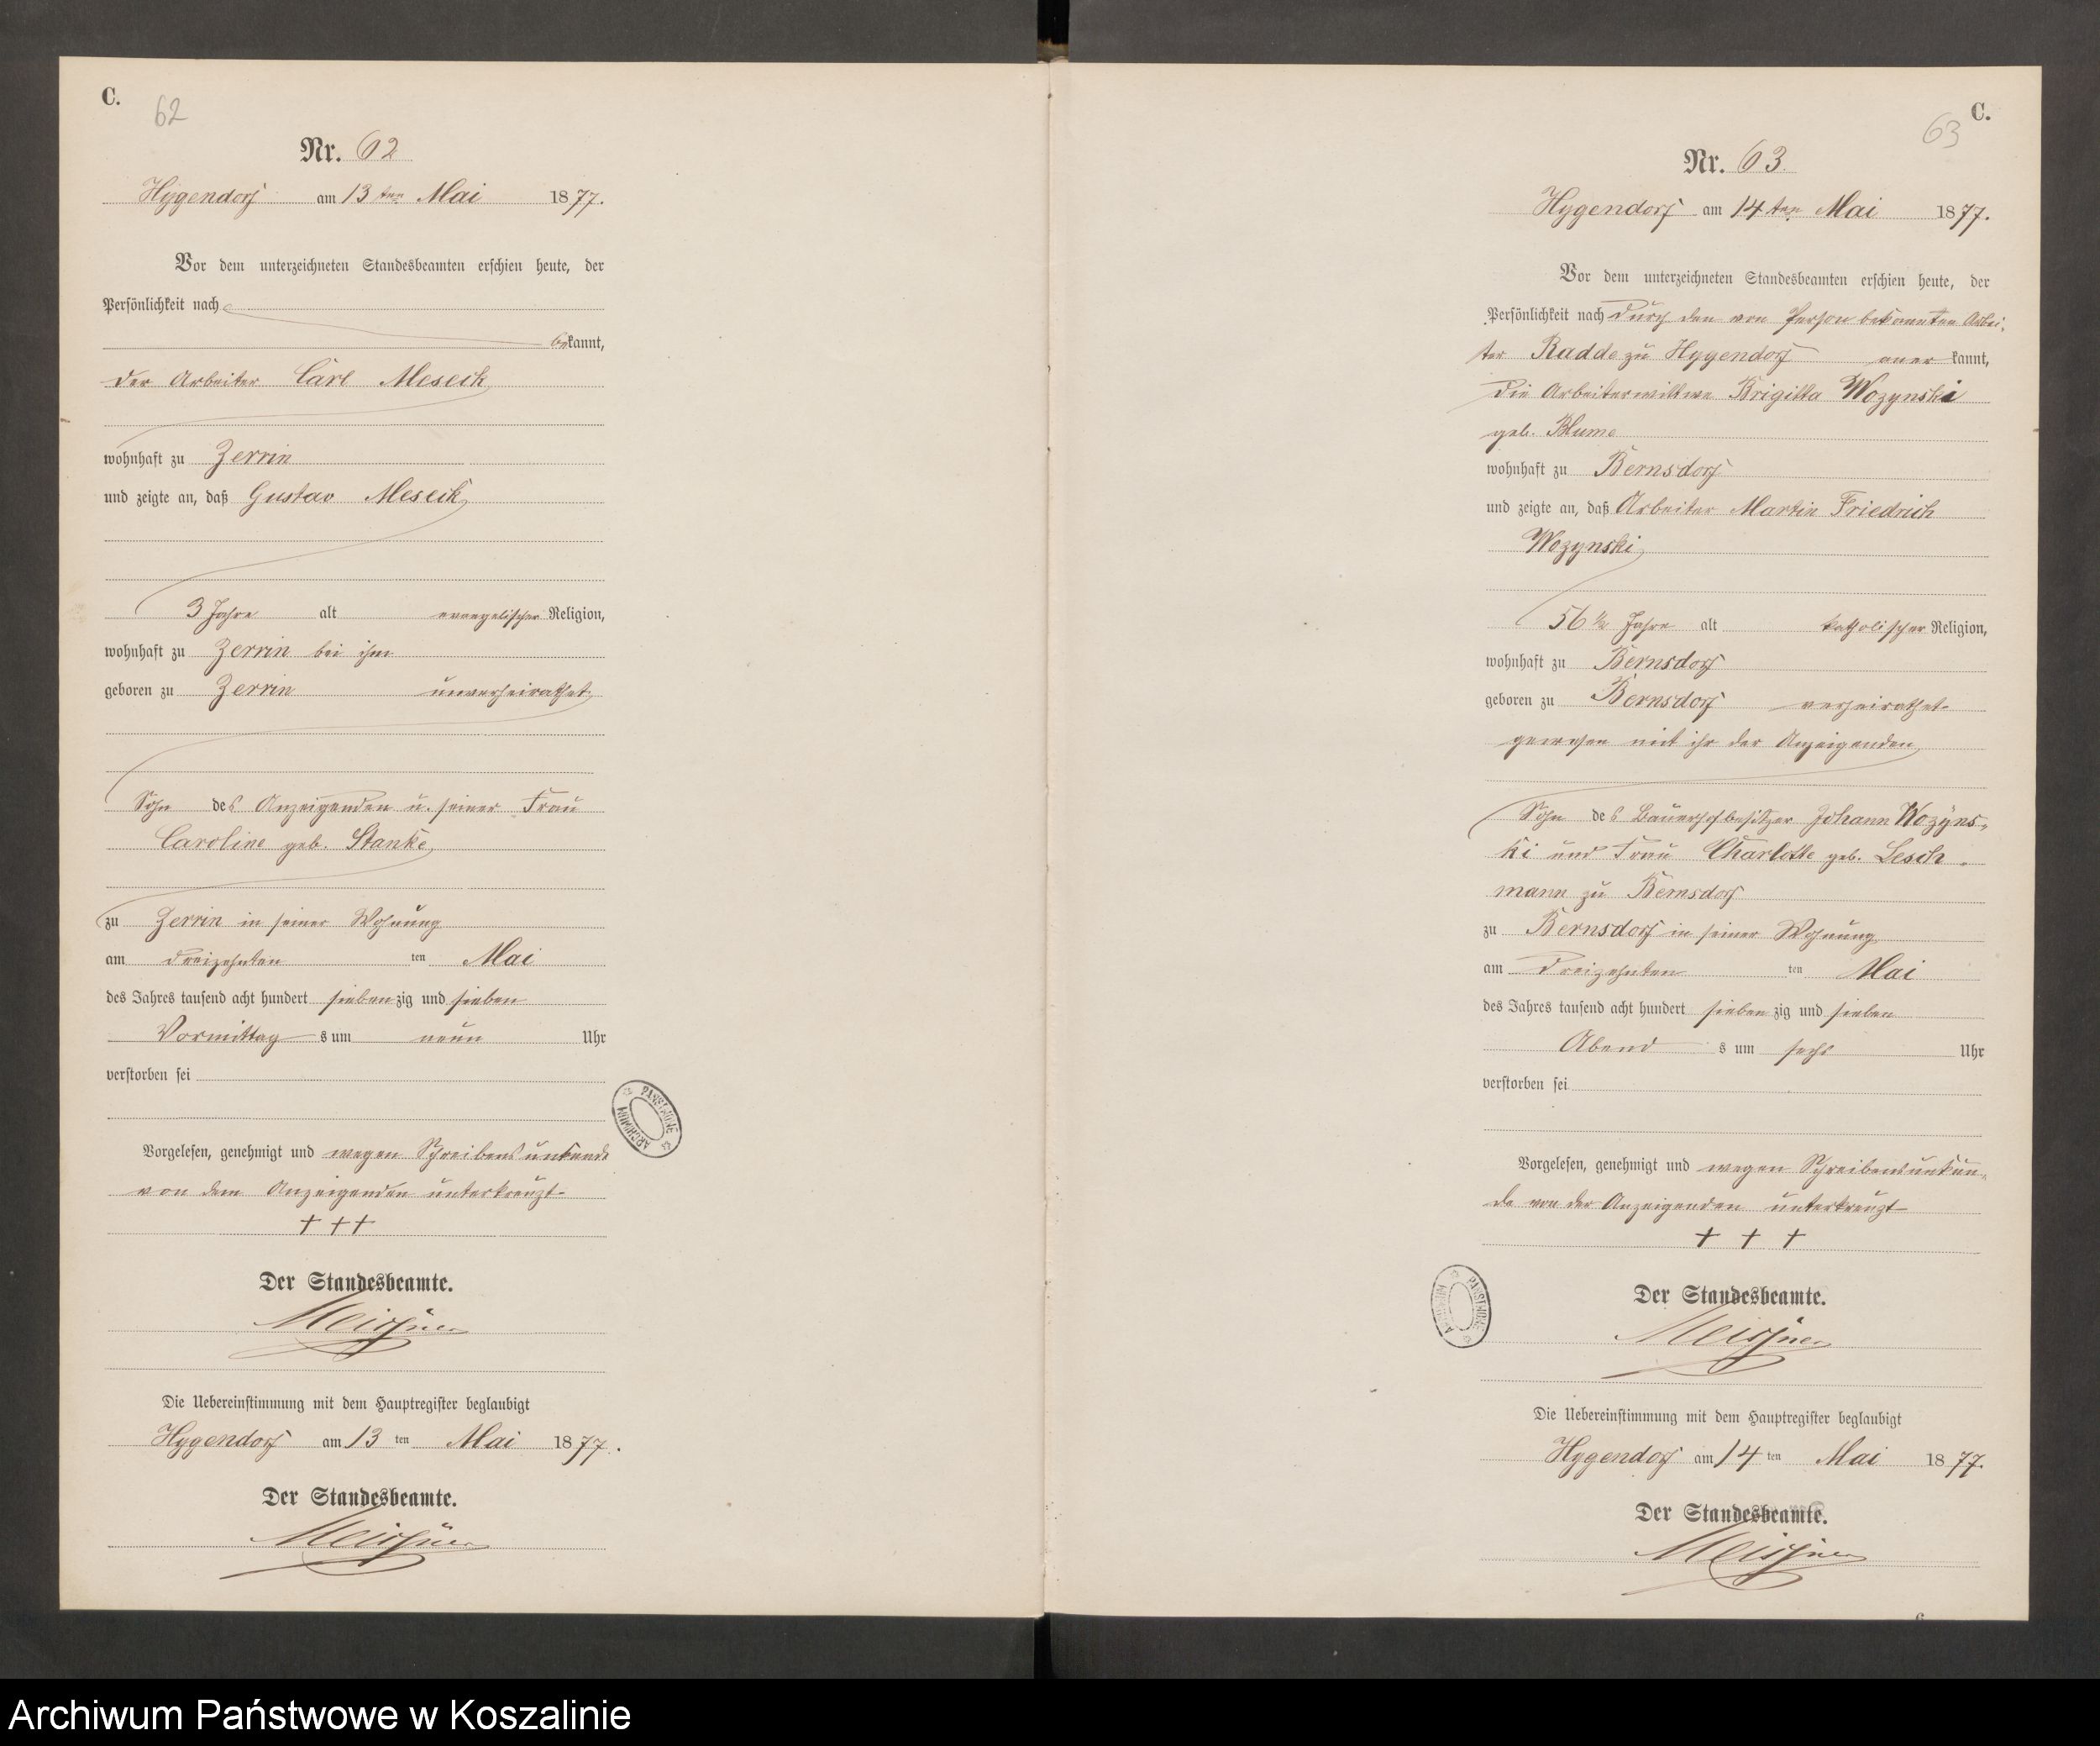 C.
62
Nr. 62
Hygendorf am 13ten Mai 1877.
Vor dem unterzeichneten Standesbeamten erschien heute, der
Persönlichkeit nach
bekannt,
der Arbeiter Carl Meseck
wohnhaft zu Zerrin
und zeigte an, daß Gustav Meseck
3 Jahre alt evangelischer Religion,
wohnhaft zu Zerrin bei ihm
geboren zu Zerrin unverheirathet
Sohn des Anzeigenden u. seiner Frau
Caroline geb. Stanke
zu Zerrin in seiner Wohnung
am dreizehnten ten Mai
des Jahres tausend acht hundert siebenzig und sieben
Vormittags um neun Uhr
verstorben sei
Vorgelesen, genehmigt und wegen Schreibensunkunde
von dem Anzeigenden unterkreuzt
+ + +
Der Standesbeamte.
Meissner
Die Uebereinstimmung mit dem Hauptregister beglaubigt
Hygendorf am 13ten Mai 1877.
Der Standesbeamte.
Meissner
PAŃSTWOWE
ARCHIWUM
C.
63
Nr. 63.
Hygendorf am 14ten Mai 1877.
Vor dem unterzeichneten Standesbeamten erschien heute, der
Persönlichkeit nach durch den von Person bekannten Arbei-
ter Radde zu Hygendorf anerkannt,
die Arbeiterwittwe Brigitta Wozynski
geb. Blume
wohnhaft zu Bernsdorf
und zeigte an, daß Arbeiter Martin Friedrich
Wozynski
56 1/2 Jahre alt katholischer Religion,
wohnhaft zu Bernsdorf
geboren zu Bernsdorf verheirathet
gewesen mit ihr der Anzeigenden
Sohn des Bauerhofbesitzer Johann Wozyns-
ki und Frau Charlotte geb. Lesch-
mann zu Bernsdorf
zu Bernsdorf in seiner Wohnung
am dreizehnten ten Mai
des Jahres tausend acht hundert siebenzig und sieben
Abends um sechs Uhr
verstorben sei
Vorgelesen, genehmigt und wegen Schreibensunkun-
de von der Anzeigenden unterkreuzt
+ + +
Der Standesbeamte.
Meissner
Die Uebereinstimmung mit dem Hauptregister beglaubigt
Hygendorf am 14ten Mai 1877.
Der Standesbeamte.
Meissner
PAŃSTWOWE
ARCHIWUM
Archiwum Państwowe w Koszalinie